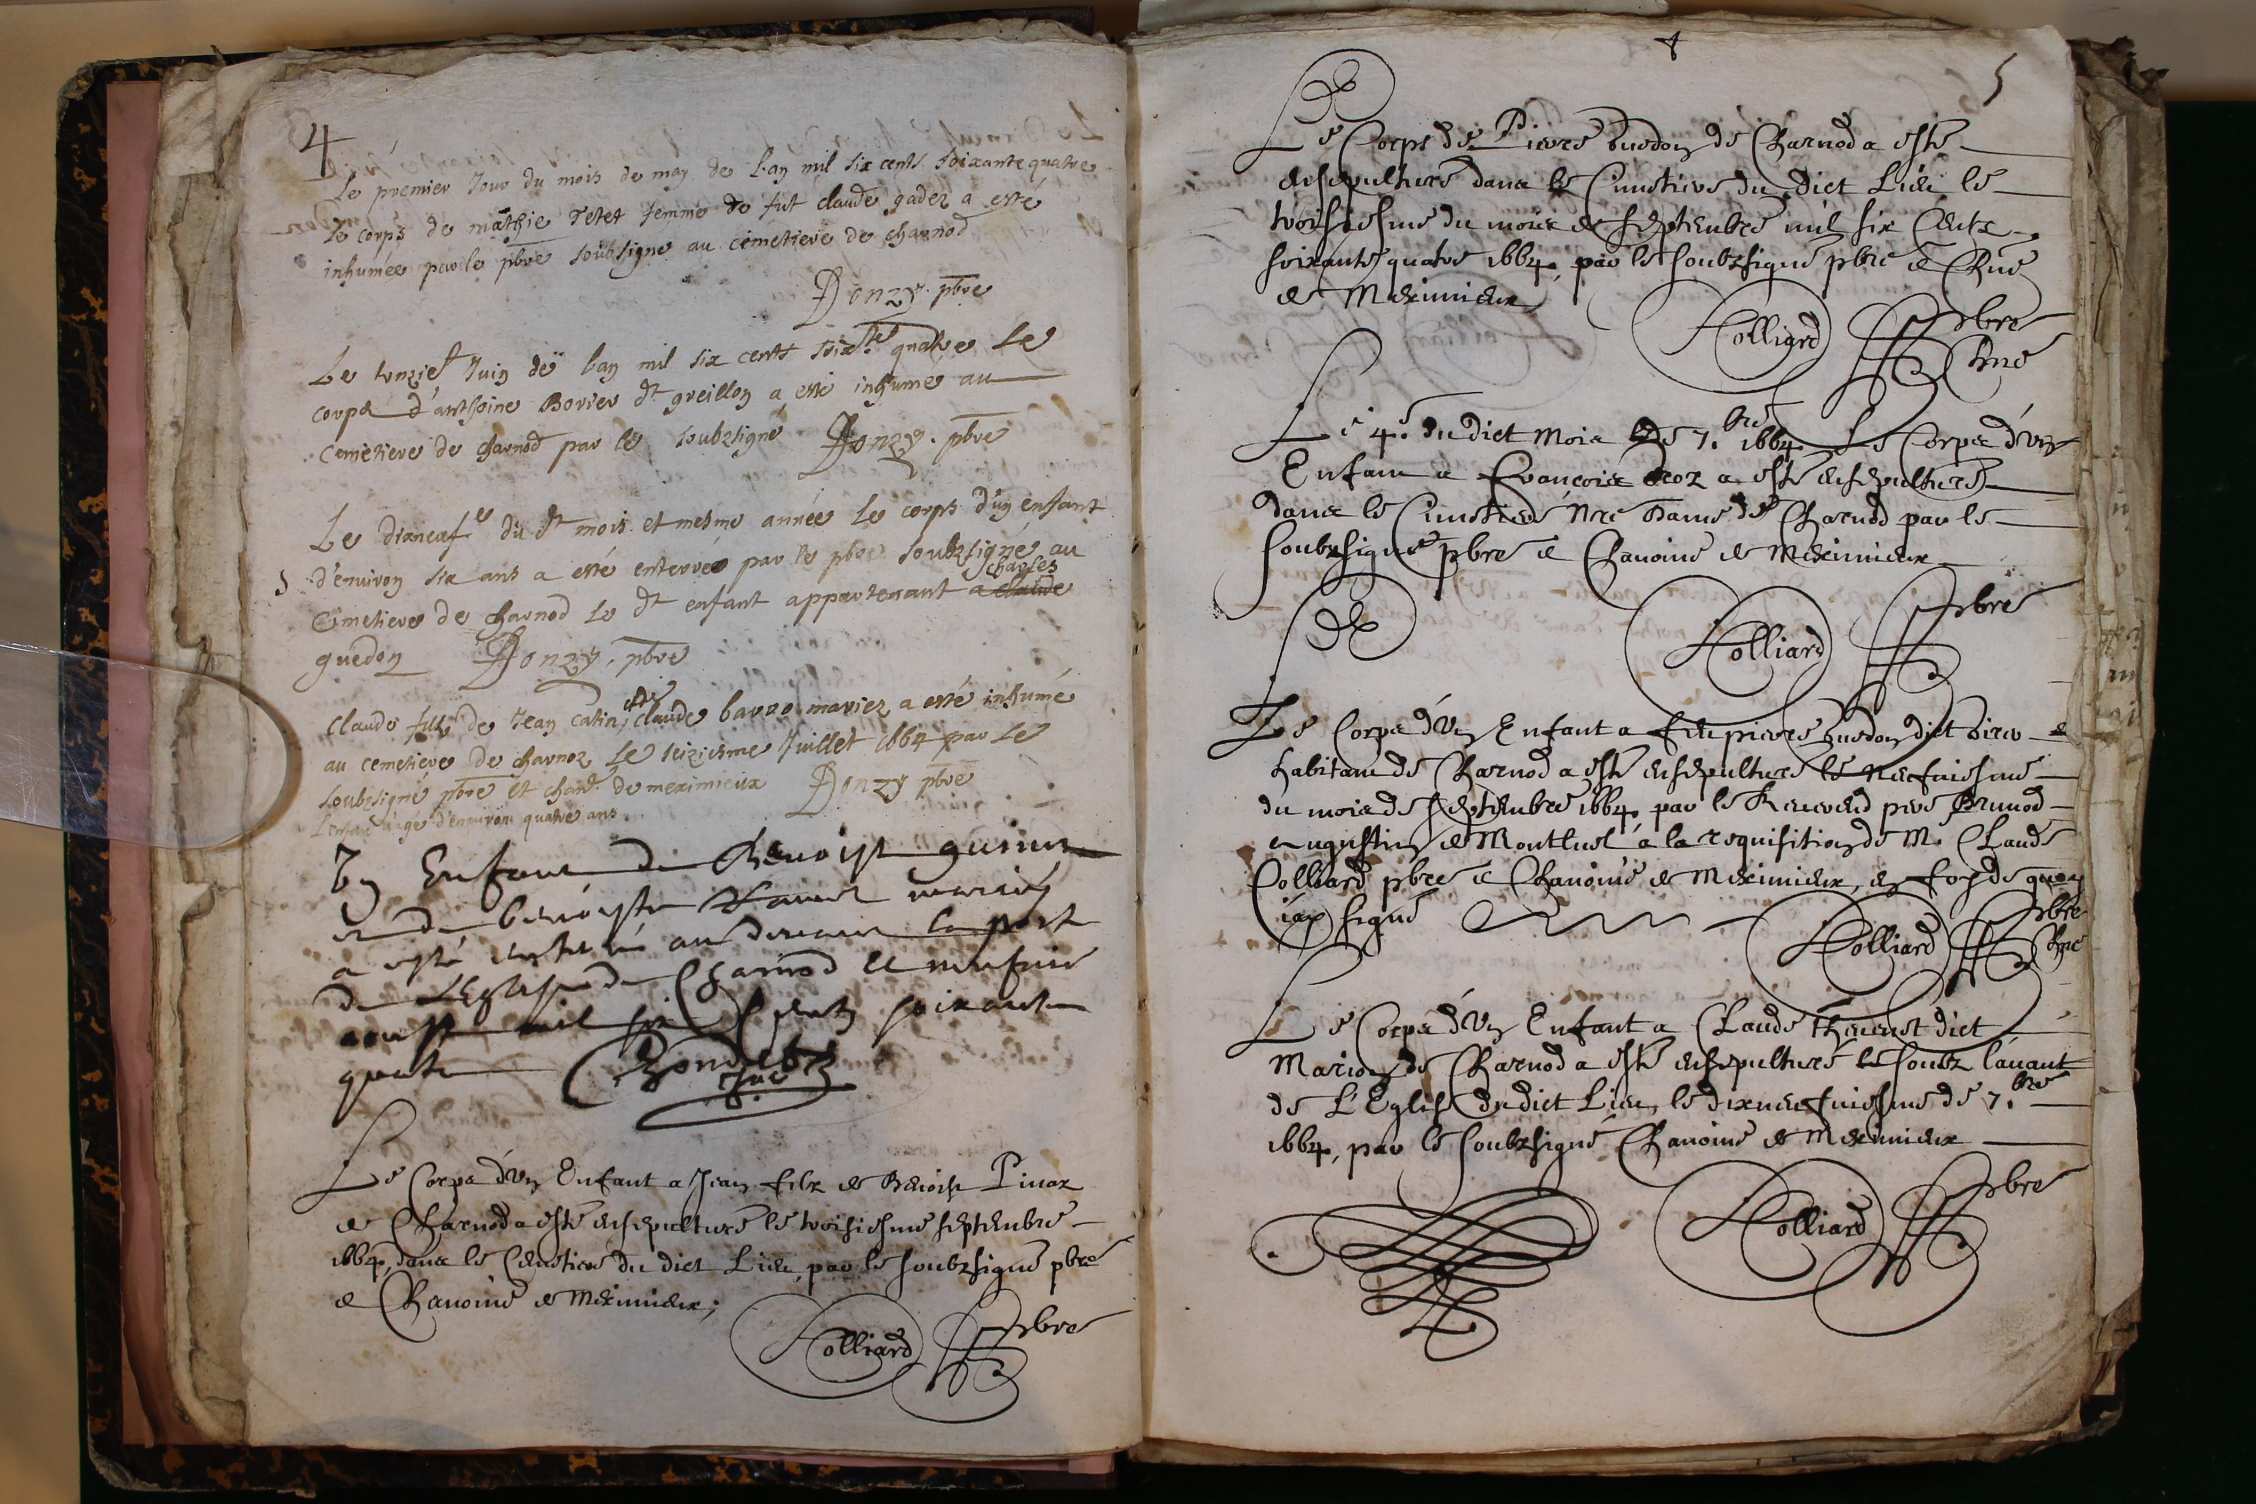 4
Le premier Jour du mois de may de l'an mil six cents soixante quatre
Le corps de mathie Tetet femme de fut claude gadez a esté
inhumée par le pbre soubsigné au cimetiere de charnod
Donzy. pbre
Le unzie Juin de lan mil six cents soixte quatre Le
corps d'anthoine Borier dt greillon a esté inhume au
Cemetiere de charnod par le soubzsigné Donzy. pbre
Le dixneufe du dt mois et mesme année Le corps d'un enfant
d'environ six ans a esté enterré par le pbre soubzsigné au
Cimetiere de charnod le dt enfant appartenant a claude charles
guedon Donzy. pbre
claude fils de Jean catin, et de claude barro mariez a esté inhumé
au cemetiere de charnoz Le seiziesme Juillet 1664 par Le
soubzsigné pbre et chane de meximieux Donzy pbre
L'enfant agé d'environ quatre ans
Un Enfant de Benoist
et de benoiste mariés
a esté enterré au devant la porte
de L'Eglise de Charnod le neufvie
aoust mil six Cents soixante
quatre
Le Corps d'Un Enfant a Jean fils de Benoist Pivaz
de Charnod a esté ensepulturé le troisiesme septembre
1664, dans le Cimetiere du dict Lieu, par le soubzsigné pbre
et Chanoine de Meximieux;
Colliard pbre
5
Le Corps de Pierre Guedon de Charnod a esté
ensepulturé dans le Cimetiere du dict Lieu le
troisiesme du mois de septembre mil six Cents
soixante quatre 1664, par le soubzsigné pbre et Chne
de Meximieux
Colliard pbre Chne
Le 4e. du dict Mois de 7.bre 1664 Le Corps d'Un
Enfant a François a esté ensepulturé
dans le Cimetiere Nre Dame de Charnod par le
soubzsigné pbre et Chanoine de Meximieux
Colliard pbre
Le Corps d'Un Enfant a feu pierre Guedon dict
habitant de Charnod a esté ensepulturé le neufviesme
du mois de septembre 1664, par le Reverend pere Brunod
augustin de Montluel a la requisition de M. Claude
Colliard pbre et Chanoine de Meximieux, en foy de quoy
iay signé
Colliard pbre Chne
Le Corps d'Un Enfant a Claude Thevenet dict
Marion de Charnod a esté ensepulturé le soubz l'avant
de L'Eglise du dict Lieu, le dixneufviesme de 7.bre
1664, par le soubzsigné Chanoine de Meximieux
Colliard pbre